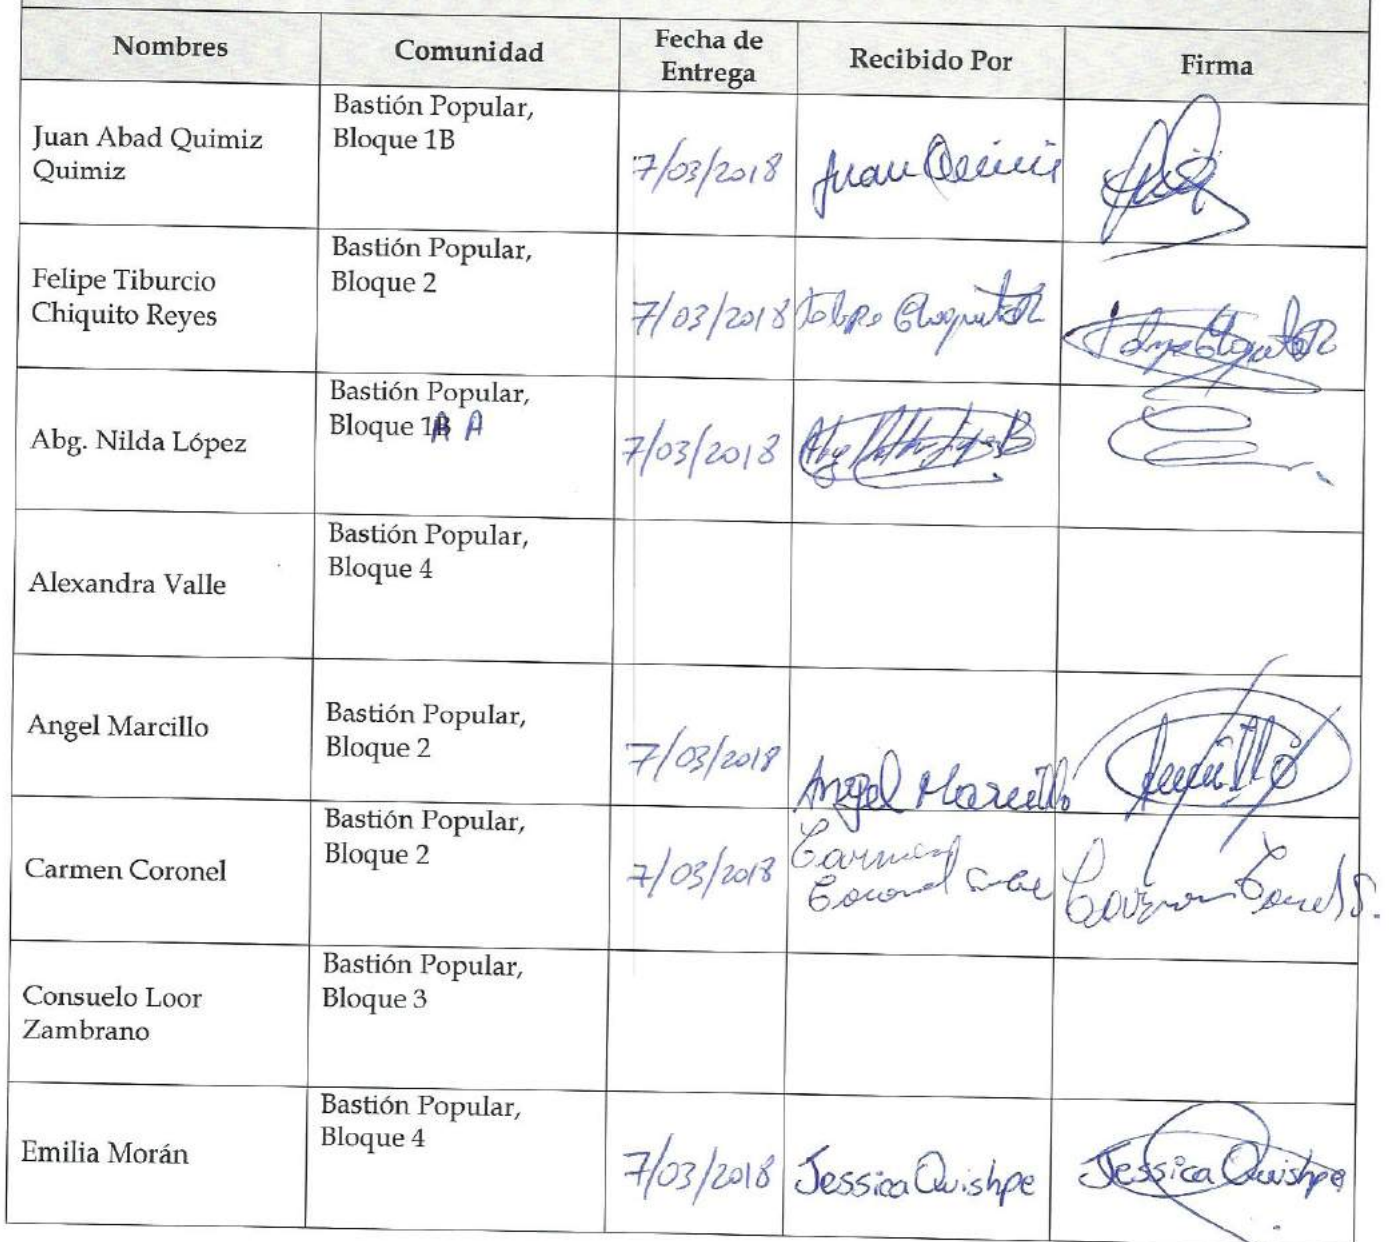 Nombres
Comunidad
Fecha de
Entrega
Recibido Por
Firma
Juan Abad Quimiz
Quimiz
Bastión Popular,
Bloque 1B
7/03/2018
Juan
Felipe Tiburcio
Chiquito Reyes
Bastión Popular,
Bloque 2
7/03/2018
Abg. Nilda López
Bastión Popular,
Bloque 1 A
7/03/2018
Alexandra Valle
Bastión Popular,
Bloque 4
Angel Marcillo
Bastión Popular,
Bloque 2
7/03/2018
Angel Marcillo
Carmen Coronel
Bastión Popular,
Bloque 2
7/03/2018
Carmen
Coronel
Consuelo Loor
Zambrano
Bastión Popular,
Bloque 3
Emilia Morán
Bastión Popular,
Bloque 4
7/03/2018
Jessica Quishpe
Jessica Quishpe